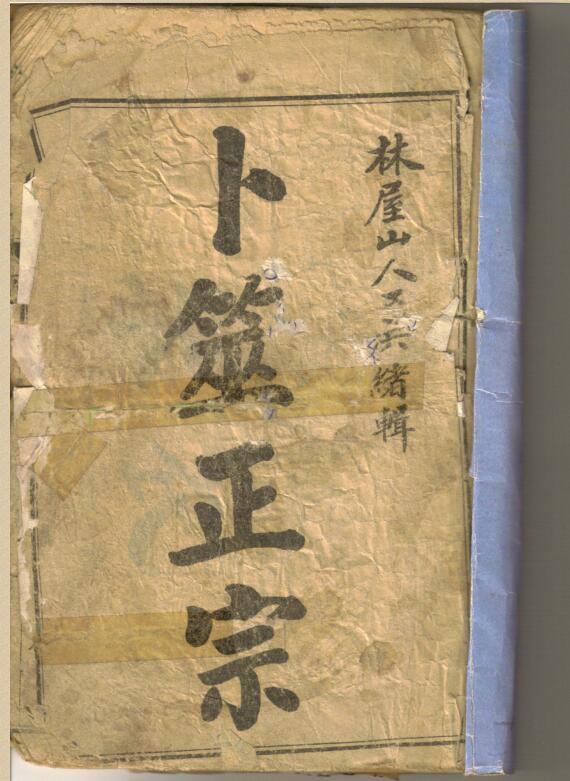 林屋山人王洪緒輯
卜筮正宗